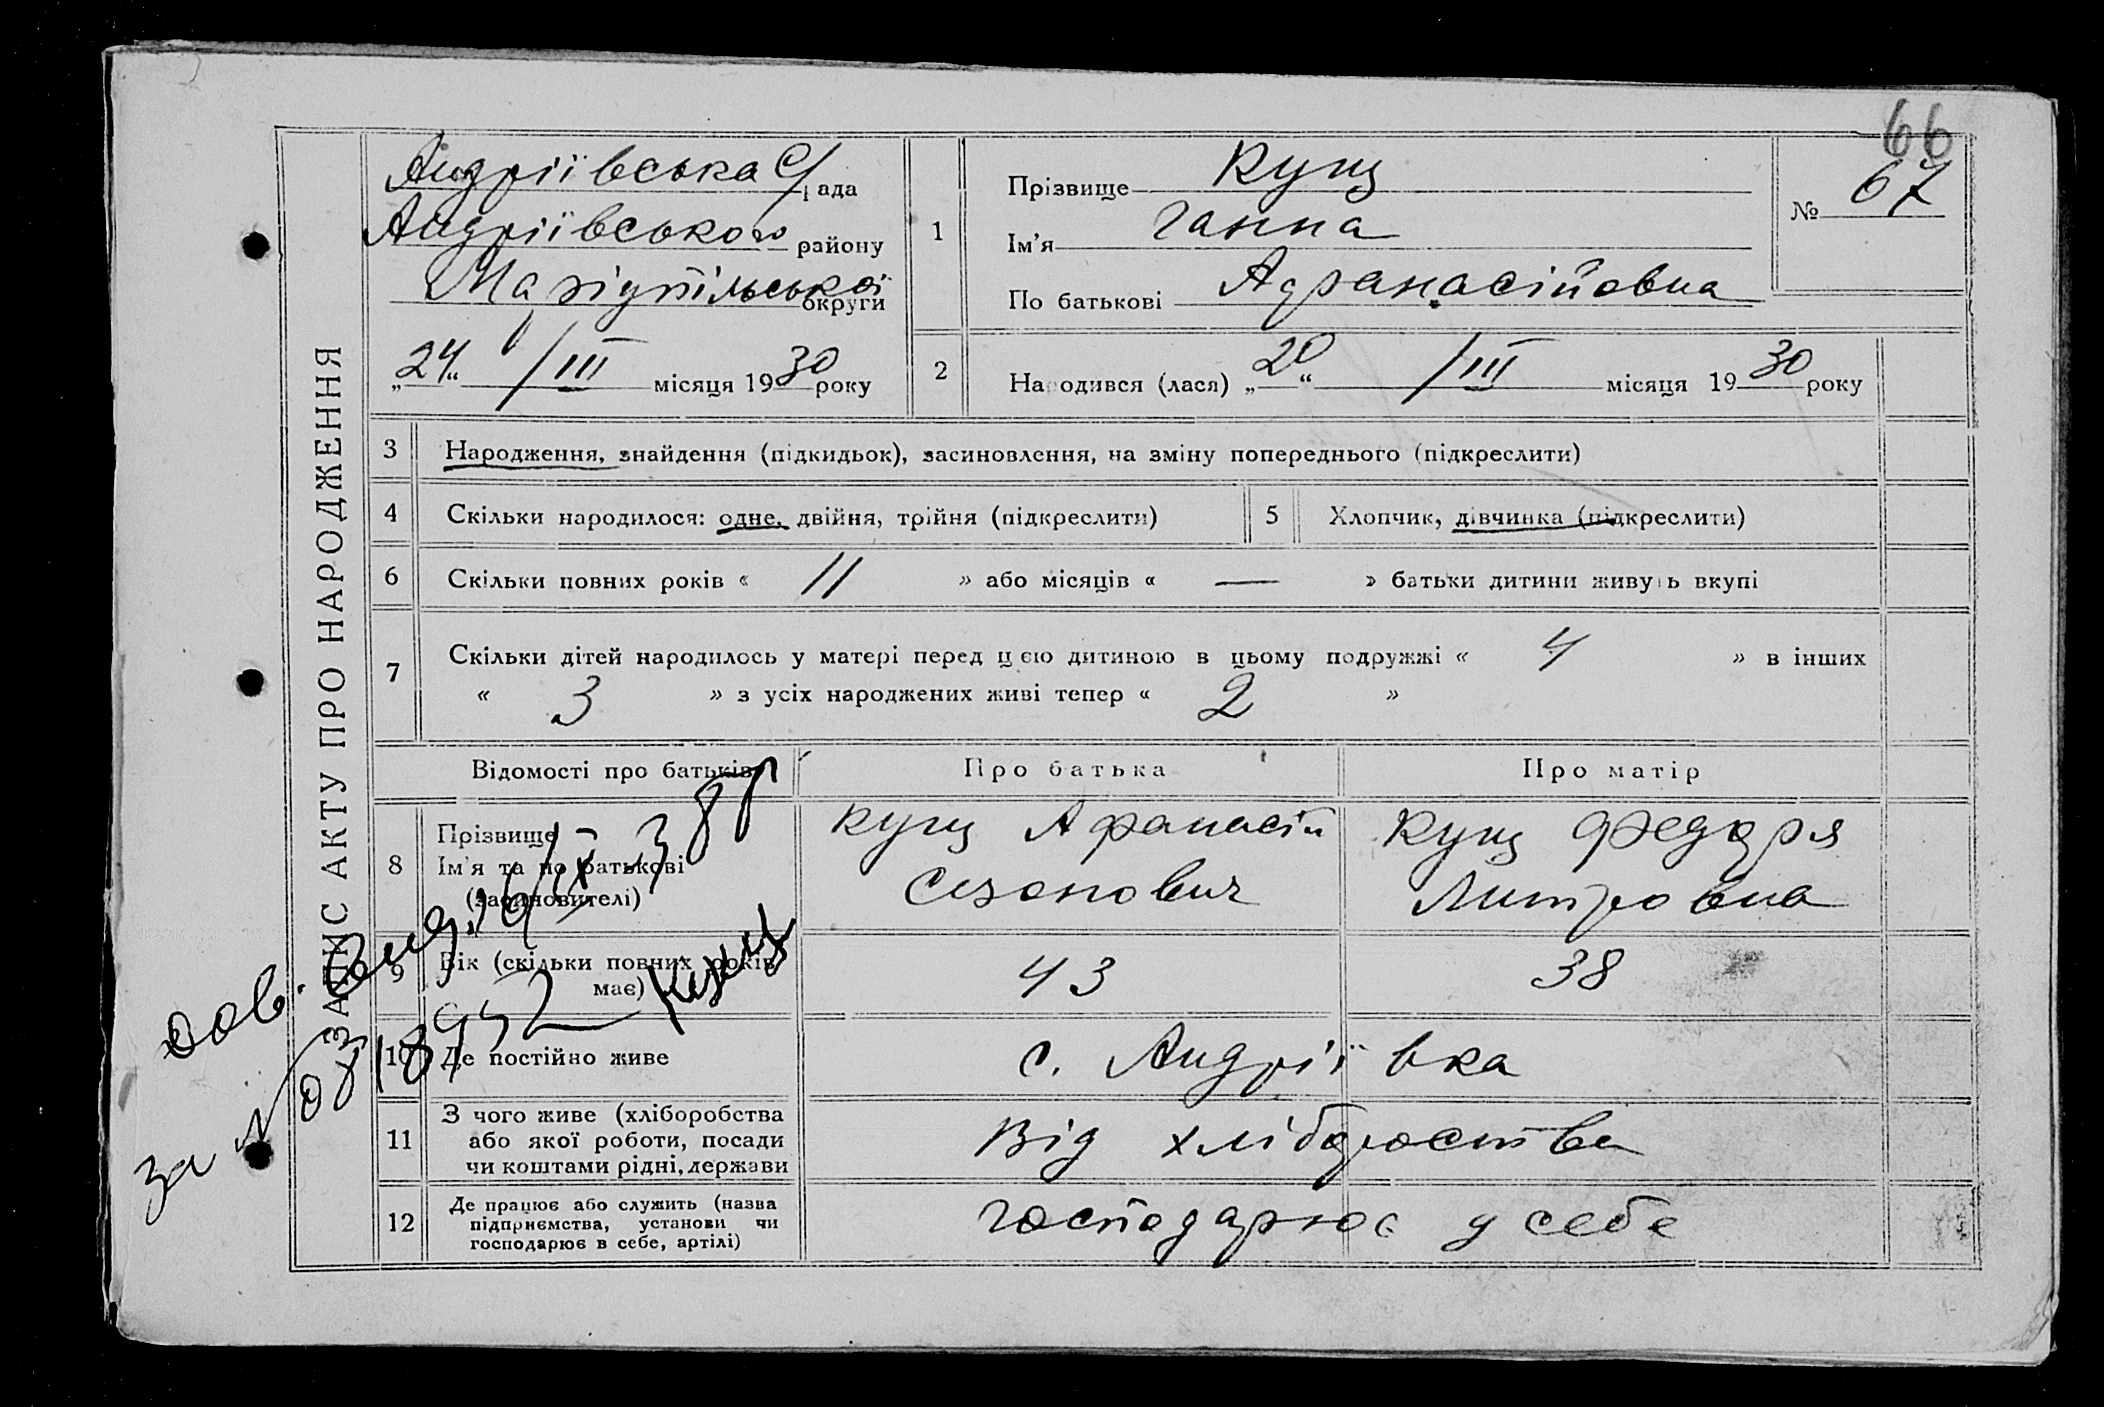 66
ЗАПИС АКТУ ПРО НАРОДЖЕННЯ
Андріївська С/рада
Андріївського району
Маріупільської округи
„24“ /III місяця 1930 року
1
Прізвище Кущ
Ім'я Ганна
По батькові Афанасійовна
№ 67
2
Народився (лася) „20“ /III місяця 1930 року
3 Народження, знайдення (підкидьок), засиновлення, на зміну попереднього (підкреслити)
4 Скільки народилося: одне, двійня, трійня (підкреслити)
5 Хлопчик, дівчинка (підкреслити)
6 Скільки повних років « 11 » або місяців « — » батьки дитини живуть вкупі
7 Скільки дітей народилось у матері перед цією дитиною в цьому подружжі « 4 » в інших
« 3 » з усіх народжених живі тепер « 2 »
Відомості про батьків Про батька Про матір
8 Прізвище
Ім'я та по батькові
(засиновителі)
Кущ Афанасій
Сезонович
Кущ Федоря
Митровна
9 Вік (скільки повних років
має)
43 38
10 Де постійно живе с. Андріївка
11 З чого живе (хліборобства
або якої роботи, посади
чи коштами рідні, держави
Від хлібороства
12 Де працює або служить (назва
підприємства, установи чи
господарює в себе, артілі)
господарює у себе
за №